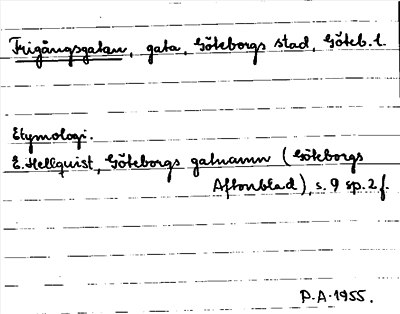 Frigångsgatan, gata, Göteborgs stad, Göteb. l.
Etymologi.
E. Hellquist, Göteborgs gatnamn (Göteborgs
Aftonblad), s. 9 sp. 2 f.
P.A. 1955.